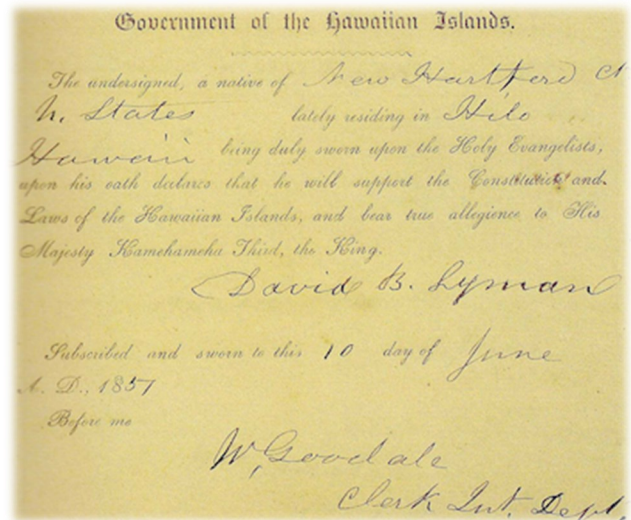 Government of the Hawaiian Islands.
The undersigned, a native of New Hartford Ct
U. States lately residing in Hilo
Hawaii being duly sworn upon the Holy Evangelists,
upon his oath declares that he will support the Constitution and
Laws of the Hawaiian Islands, and bear true allegience to His
Majesty Kamehameha Third, the King.
David B. Lyman
Subscribed and sworn to this 10 day of June
A. D., 1851
Before me
W. Goodale
Clerk Int. Dept.